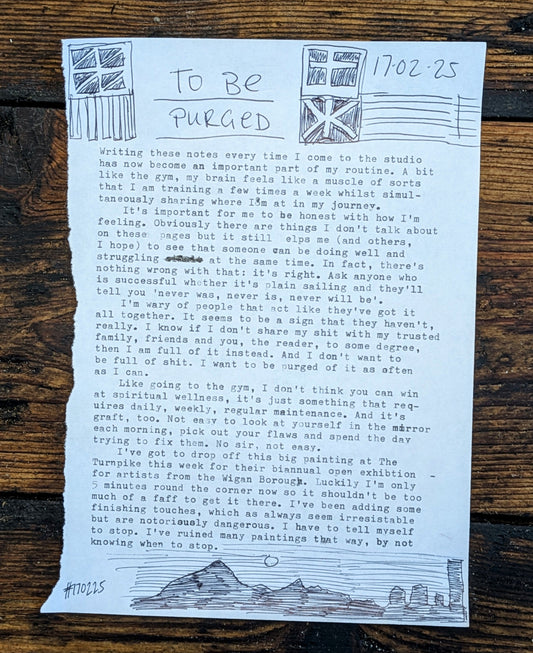 TO BE
PURGED
17·02·25
Writing these notes every time I come to the studio
has now become an important part of my routine. A bit
like the gym, my brain feels like a muscle of sorts
that I am training a few times a week whilst simul-
taneously sharing where I'm at in my journey.
It's important for me to be honest with how I'm
feeling. Obviously there are things I don't talk about
on these pages but it still elps me (and others,
I hope) to see that someone can be doing well and
struggling at the same time. In fact, there's
nothing wrong with that: it's right. Ask anyone who
is successful whether it's plain sailing and they'll
tell you 'never was, never is, never will be'.
I'm wary of people that act like they've got it
all together. It seems to be a sign that they haven't,
really. I know if I don't share my shit with my trusted
family, friends and you, the reader, to some degree,
then I am full of it instead. And I don't want to
be full of shit. I want to be purged of it as often
as I can.
Like going to the gym, I don't think you can win
at spiritual wellness, it's just something that req-
uires daily, weekly, regular maintenance. And it's
graft, too. Not easy to look at yourself in the mirror
each morning, pick out your flaws and spend the day
trying to fix them. No sir, not easy.
I've got to drop off this big painting at The
Turnpike this week for their biannual open exhibtion -
for artists from the Wigan Borough. Luckily I'm only
5 minutes round the corner now so it shouldn't be too
much of a faff to get it there. I've been adding some
finishing touches, which as always seem irresistable
but are notoriously dangerous. I have to tell myself
to stop. I've ruined many paintings that way, by not
knowing when to stop.
#170225